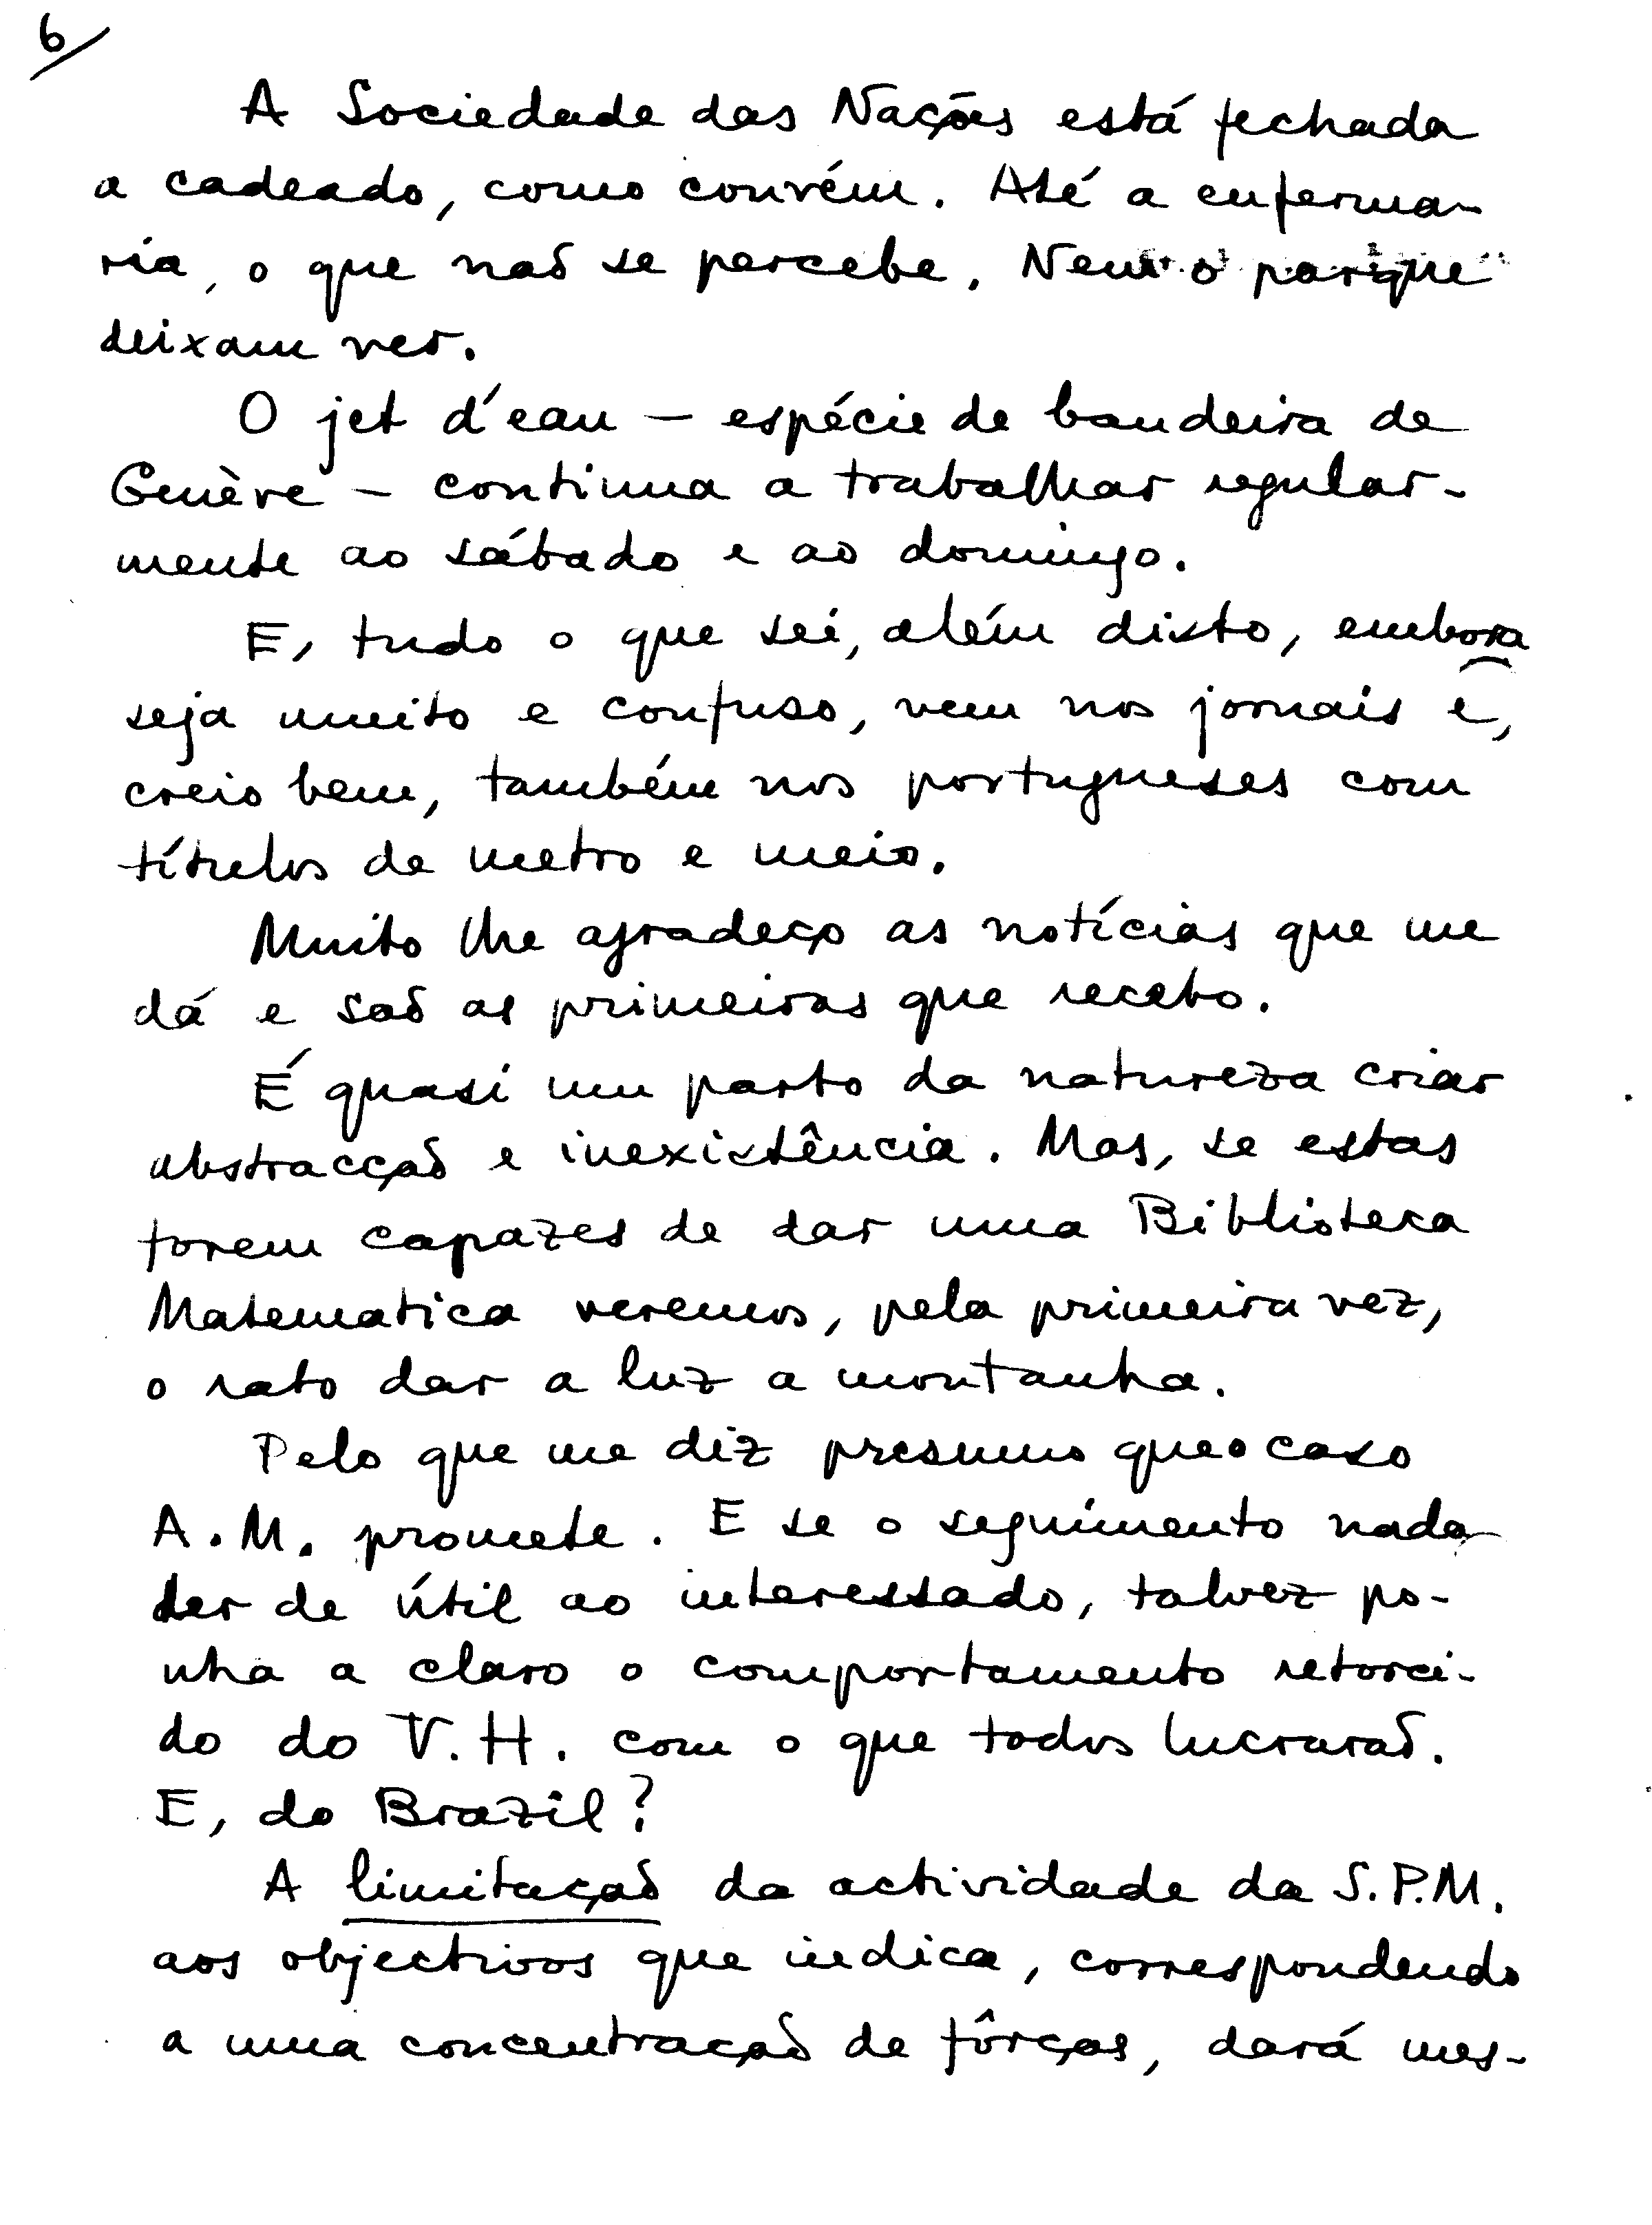 6/
A Sociedade das Nações está fechada
a cadeado, como convém. Até a enferma-
ria, o que não se percebe. Nem o parque
deixam ver.
O jet d'eau — espécie de bandeira de
Genève — continua a trabalhar regular-
mente ao sábado e ao domingo.
E, tudo o que sei, além disto, embora
seja muito e confuso, vem nos jornais e,
creio bem, também nos portugueses com
títulos de metro e meio.
Muito lhe agradeço as notícias que me
dá e são as primeiras que recebo.
É quasi um parto da natureza criar
abstracção e inexistência. Mas, se estas
forem capazes de dar uma Biblioteca
Matematica veremos, pela primeira vez,
o rato dar a luz a montanha.
Pelo que me diz presumo que o caso
A.M. promete. E se o seguimento nada
der de útil ao interessado, talvez po-
nha a claro o comportamento retorci-
do do V.H. com o que todos lucrarão.
E, do Brazil?
A limitação da actividade da S.P.M.
aos objectivos que indica, correspondendo
a uma concentração de fôrças, dará mes-